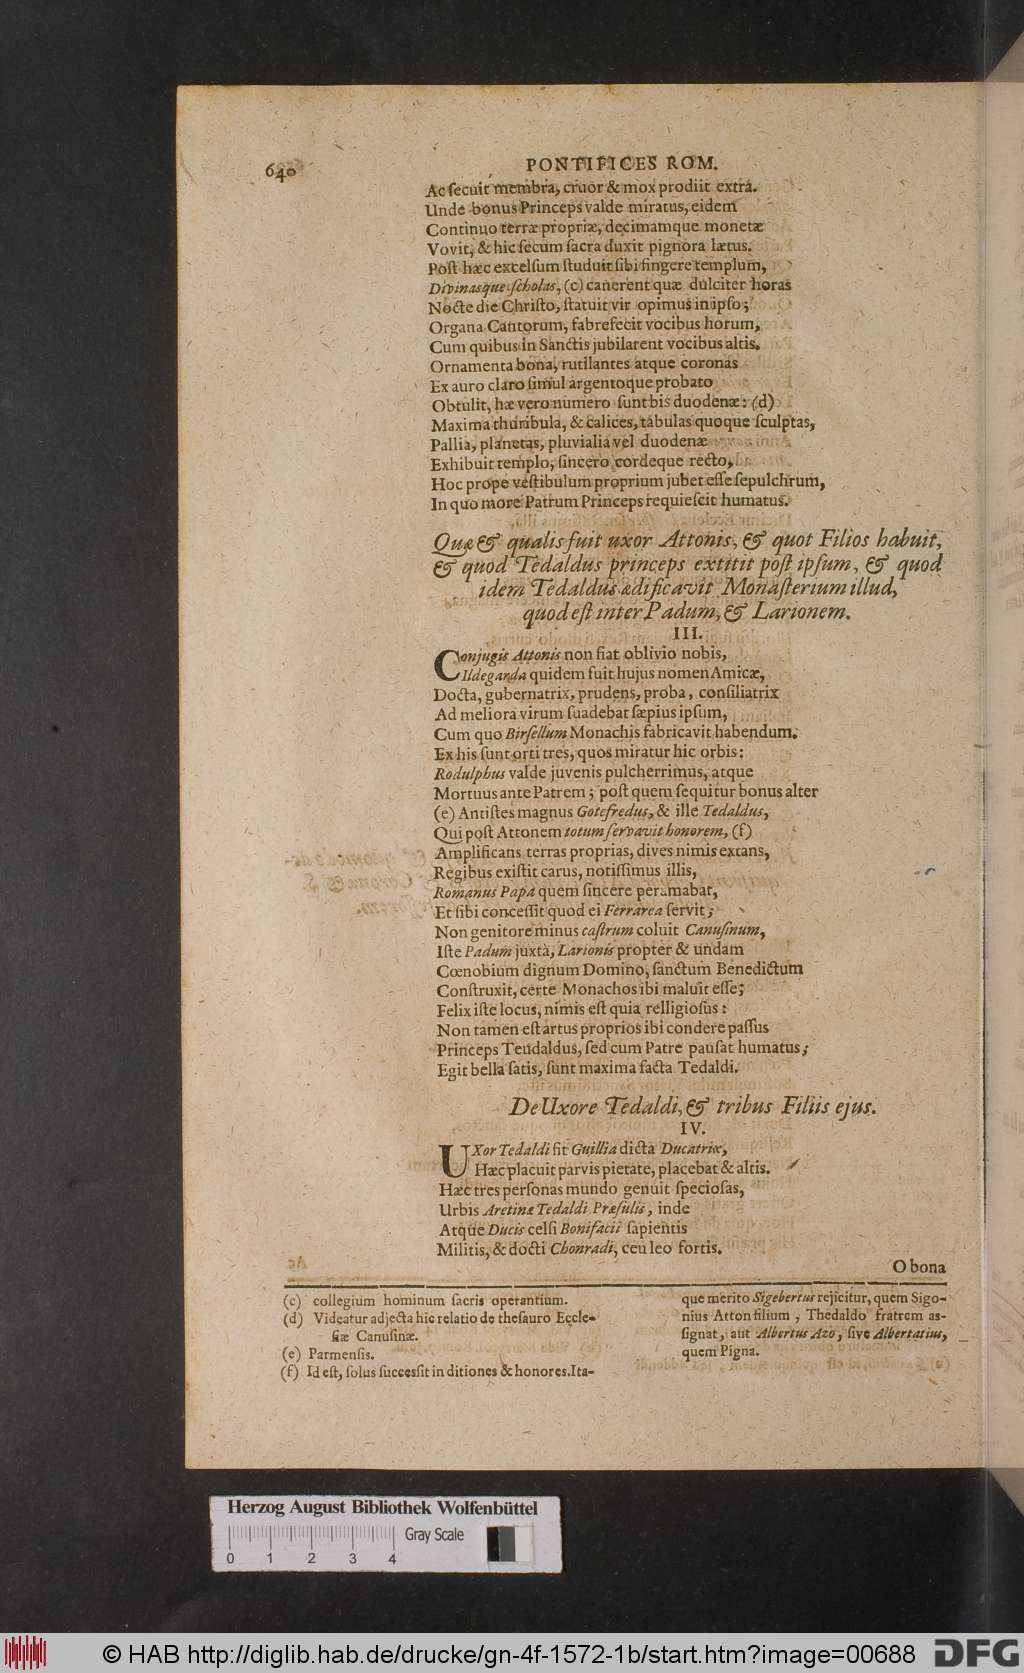 640
PONTIFICES ROM.
Ac ſecuit membra, cruor & mox prodiit extra.
Unde bonus Princeps valde miratus, eidem
Continuo terræ propriæ, decimamque monetæ
Vovit, & hic ſecum ſacra duxit pignora lætus.
Poſt hæc excelſum ſtuduit ſibi fingere templum,
Divinasque ſcholas, (c) canerent quæ dulciter horas
Nocte die Chriſto, ſtatuit vir opimus in ipſo;
Organa Cantorum, fabrefecit vocibus horum,
Cum quibus in Sanctis jubilarent vocibus altis.
Ornamenta bona, rutilantes atque coronas
Ex auro claro ſimul argentoque probato
Obtulit, hæ vero numero ſunt bis duodenæ: (d)
Maxima thuribula, & calices, tabulas quoque ſculptas,
Pallia, planetas, pluvialia vel duodenæ
Exhibuit templo, ſincero cordeque recto,
Hoc prope veſtibulum proprium jubet eſſe ſepulchrum,
In quo more Patrum Princeps requieſcit humatus.
Quæ & qualis fuit uxor Attonis, & quot Filios habuit,
& quod Tedaldus princeps extitit poſt ipſum, & quod
idem Tedaldus ædificavit Monaſterium illud,
quod eſt inter Padum, & Larionem.
III.
Conjugis Attonis non fiat oblivio nobis,
Ildeganda quidem fuit hujus nomen Amicæ,
Docta, gubernatrix, prudens, proba, conſiliatrix
Ad meliora virum ſuadebat ſæpius ipſum,
Cum quo Birſellum Monachis fabricavit habendum.
Ex his ſunt orti tres, quos miratur hic orbis:
Rodulphus valde juvenis pulcherrimus, atque
Mortuus ante Patrem; poſt quem ſequitur bonus alter
(e) Antiſtes magnus Gotefredus, & ille Tedaldus,
Qui poſt Attonem totum ſervavit honorem, (f)
Amplificans terras proprias, dives nimis extans,
Regibus exiſtit carus, notiſſimus illis,
Romanus Papa quem ſincere peramabat,
Et ſibi conceſſit quod ei Ferrarea ſervit;
Non genitore minus caſtrum coluit Canuſinum,
Iſte Padum juxtà, Larionis propter & undam
Cœnobium dignum Domino, ſanctum Benedictum
Conſtruxit, certe Monachos ibi maluit eſſe;
Felix iſte locus, nimis eſt quia relligioſus:
Non tamen eſt artus proprios ibi condere paſſus
Princeps Teudaldus, ſed cum Patre pauſat humatus;
Egit bella ſatis, ſunt maxima facta Tedaldi.
De Uxore Tedaldi, & tribus Filiis ejus.
IV.
UXor Tedaldi fit Guillia dicta Ducatrix,
Hæc placuit parvis pietate, placebat & altis.
Hæc tres perſonas mundo genuit ſpecioſas,
Urbis Aretinæ Tedaldi Præſulis, inde
Atque Ducis celſi Bonifacii ſapientis
Militis, & docti Chonradi, ceu leo fortis.
O bona
(c) collegium hominum ſacris operantium.
(d) Videatur adjecta hic relatio de theſauro Eccle-
ſiæ Canuſinæ.
(e) Parmenſis.
(f) Id eſt, ſolus ſucceſſit in ditiones & honores. Ita-
que merito Sigebertus rejicitur, quem Sigo-
nius Atton filium, Thedaldo fratrem as-
ſignat, aut Albertus Azo, ſive Albertatius,
quem Pigna.
Herzog August Bibliothek Wolfenbüttel
Gray Scale
0 1 2 3 4
© HAB http://diglib.hab.de/drucke/gn-4f-1572-1b/start.htm?image=00688
DFG